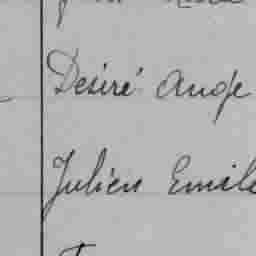 Désiré Ange
Julien Emile